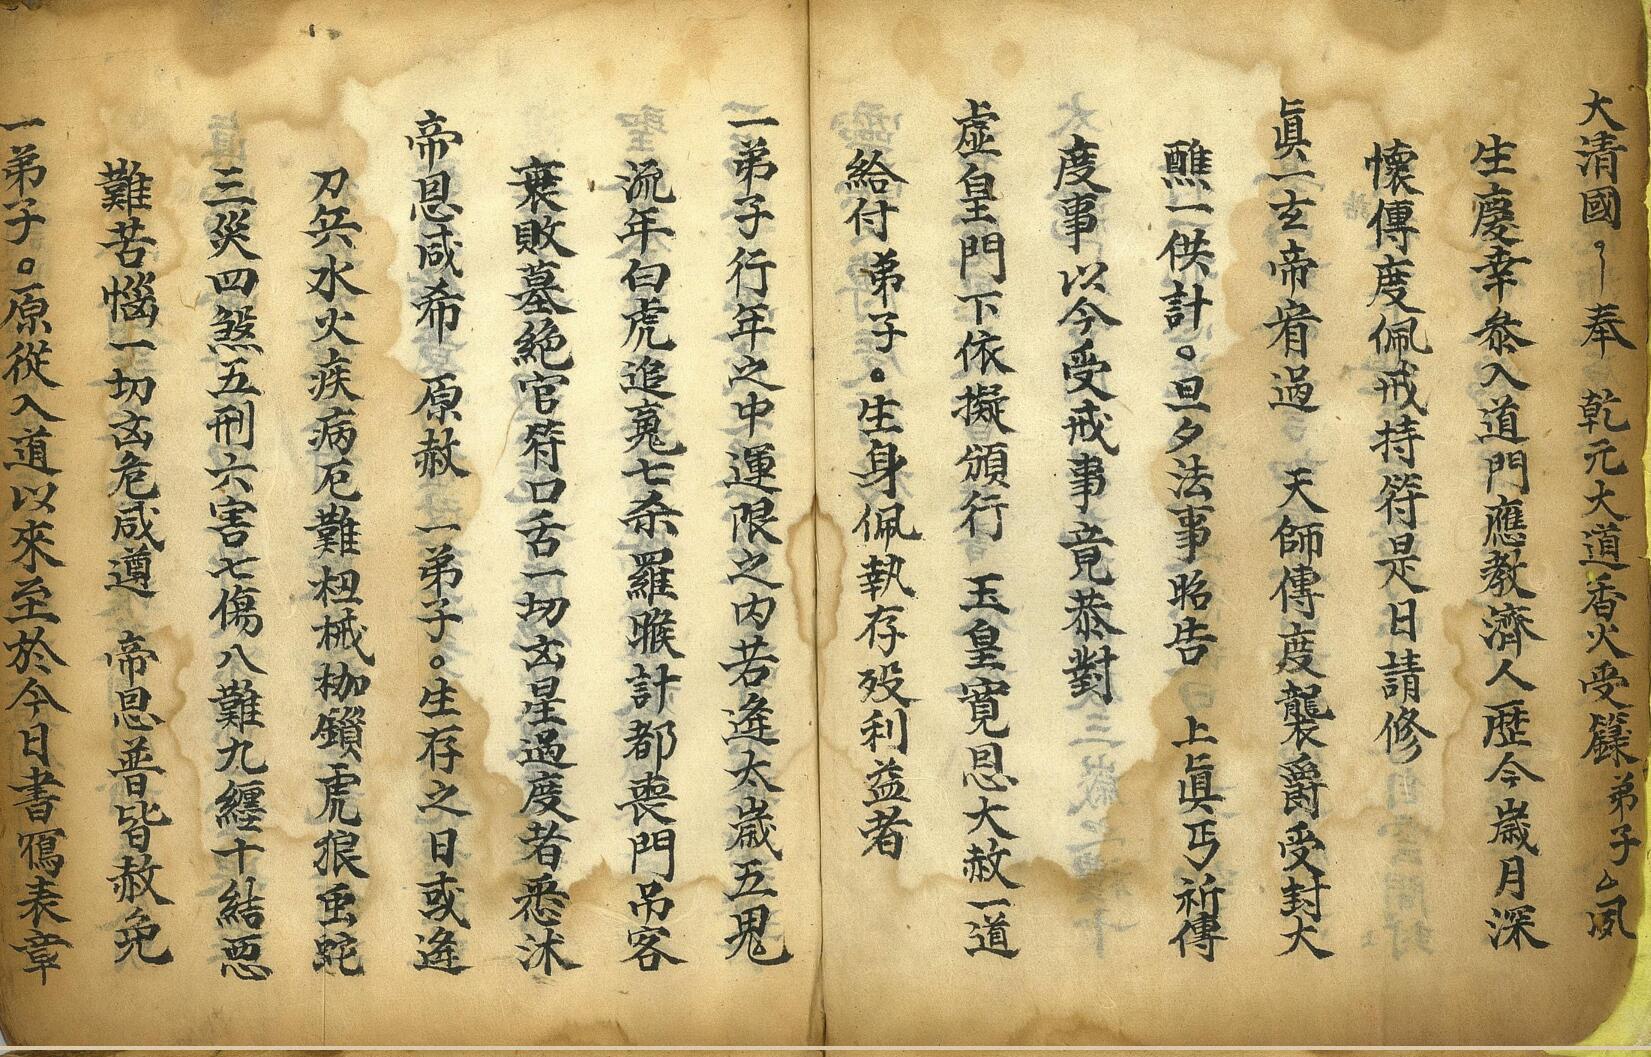 大清國 奉 乾元大道香火受籙弟子厶夙
生慶幸叅入道門應教濟人歷今歲月深
懷傳度佩戒持符是日請修
眞一玄帝宥過 天師傳度襲爵受封大
醮一供計。旦夕法事昭告 上眞丐祈傳
度事以今受戒事竟恭對
虛皇門下依擬頒行 玉皇寬恩大赦一道
給付弟子。生身佩執存殁利益者
一弟子行年之中運限之內若逢太歲五鬼
流年白虎追䰟七杀羅睺計都喪門吊客
衰敗墓絕官符口舌一切㓙星過度者悉沐
帝恩咸希 原赦 一弟子。生存之日或逢
刀兵水火疾病厄難杻械枷鎖虎狼䖝蛇
三災四煞五刑六害七傷八難九纏十結惡
難苦惱一切㓙危咸遵 帝恩普皆赦免
一弟子。原從入道以來至於今日書寫表章